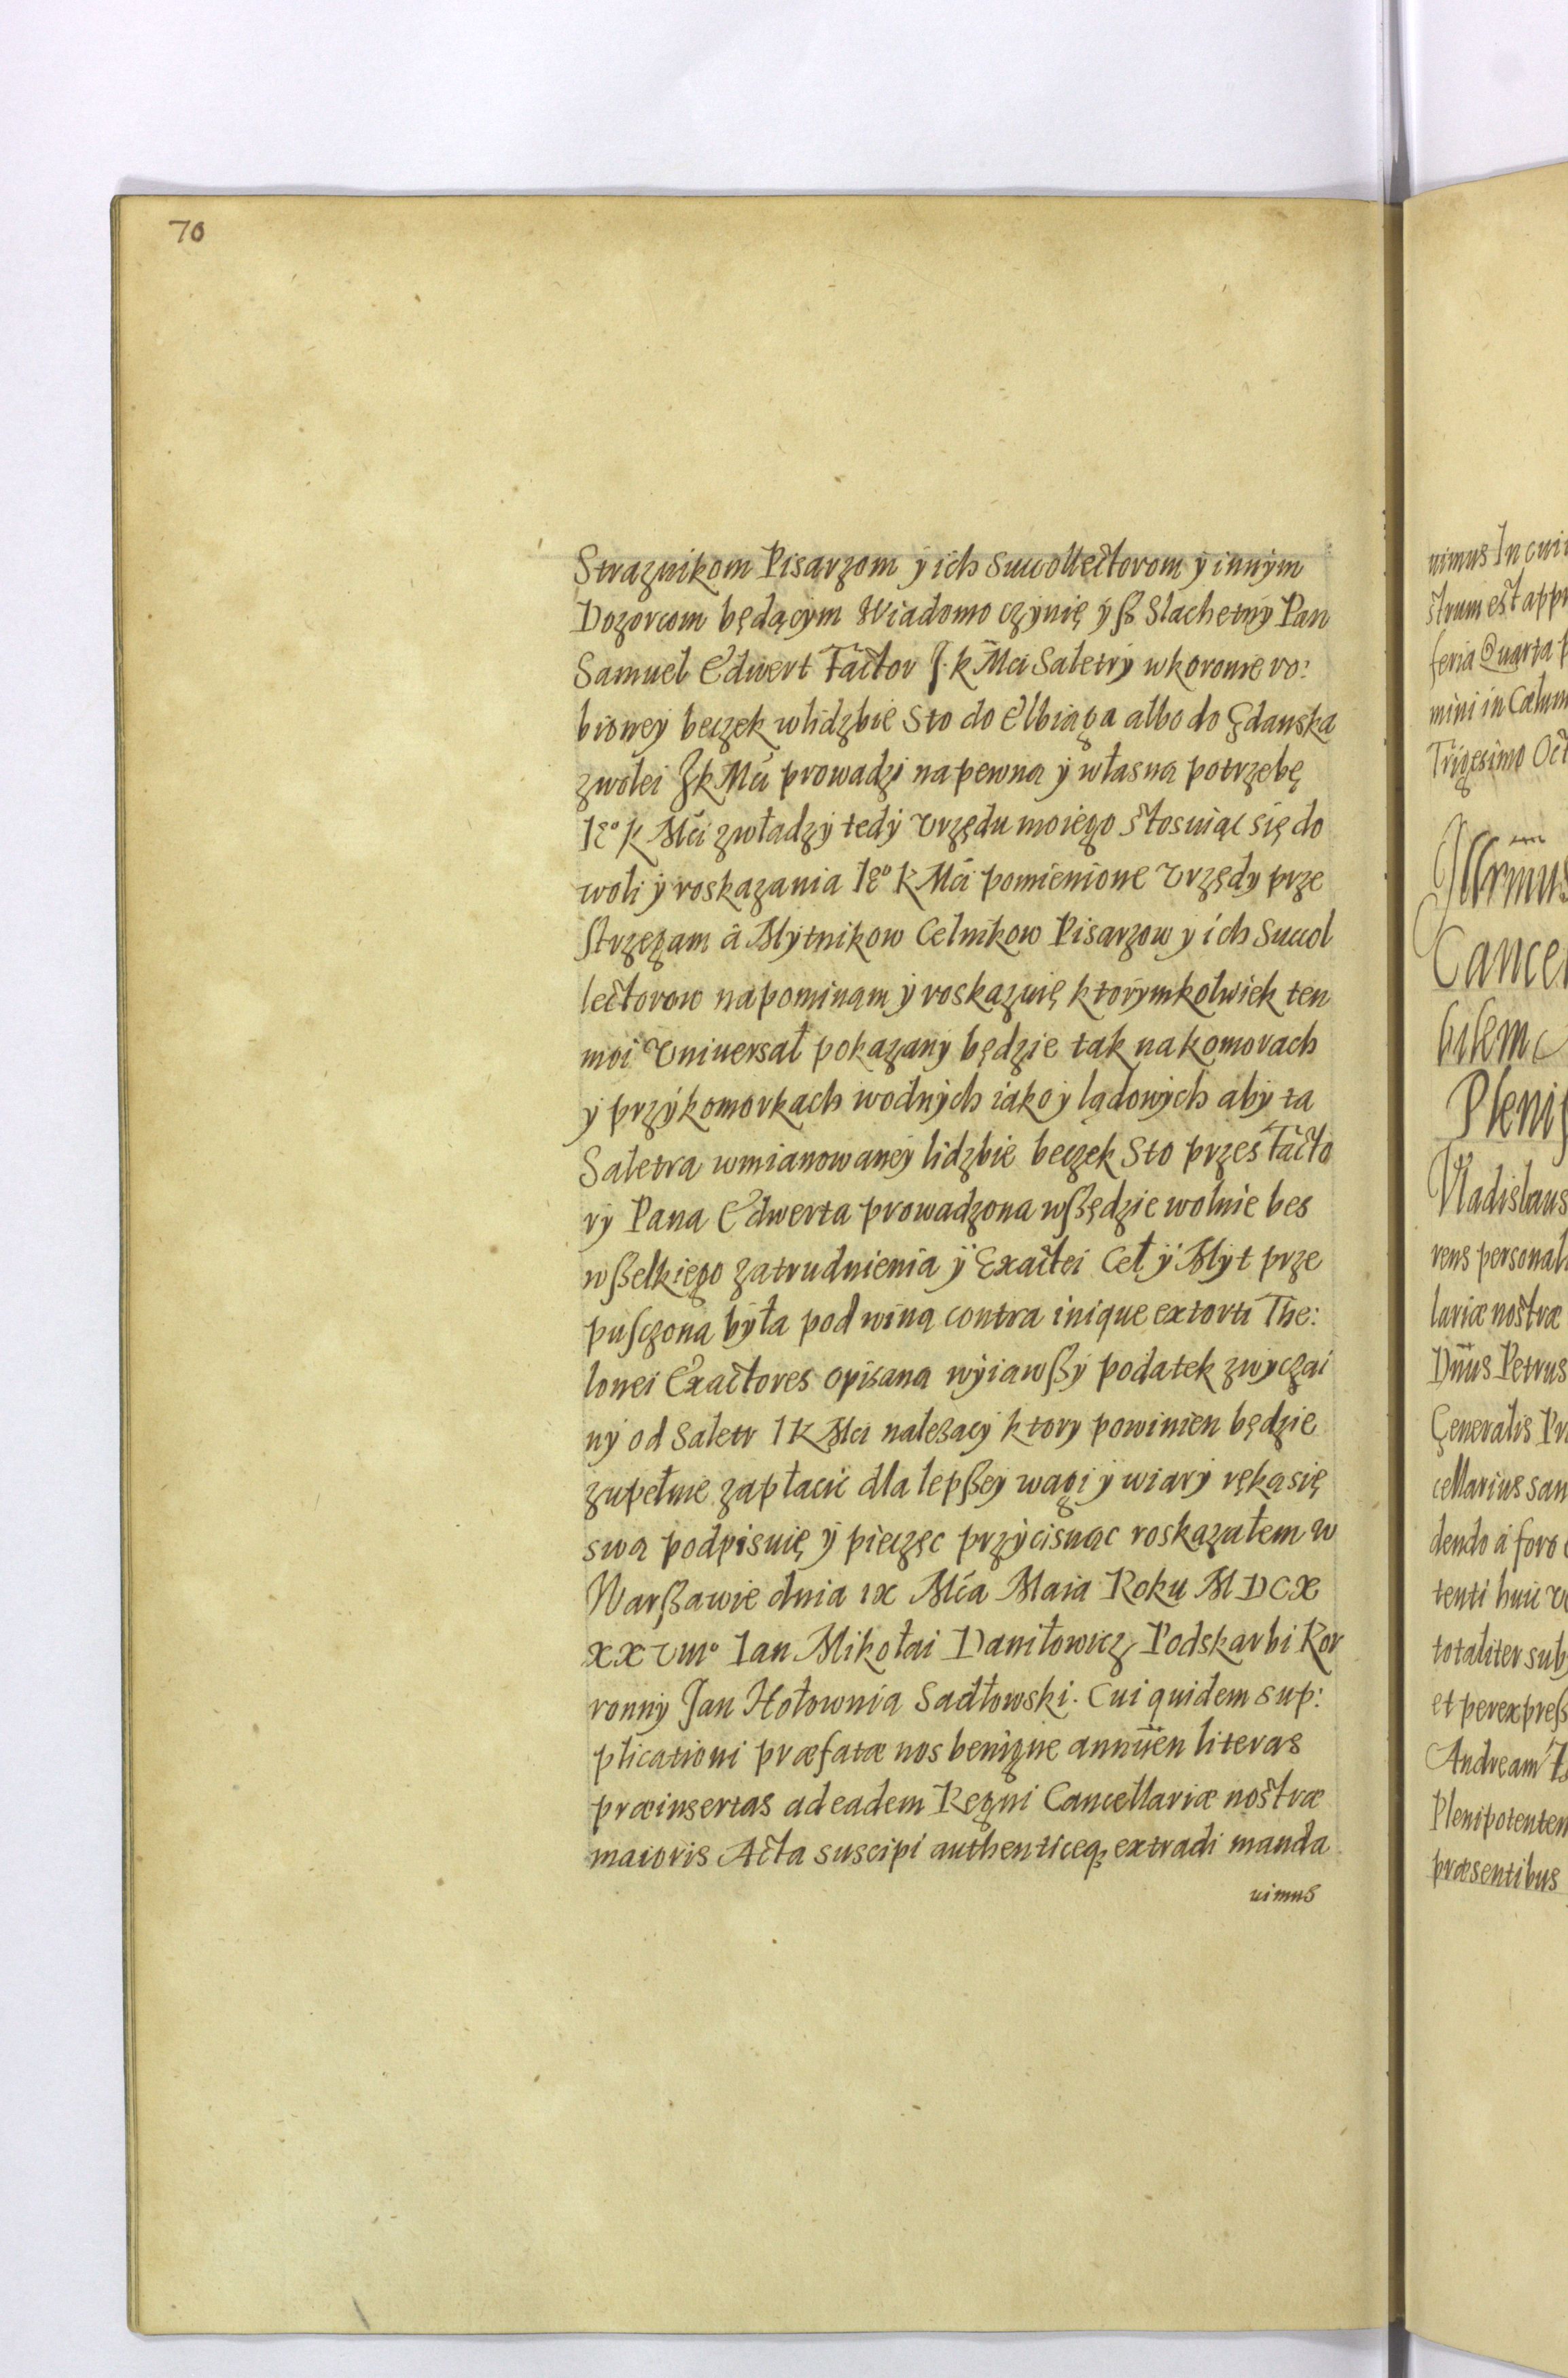 70
Straznikom Pisarzom ÿ ich Succollectorom ÿ innÿm
Dozorcom będącÿm Wiadomo czÿnię ÿß Slachetnÿ Pan
Samuel Edwert Factor J. K Mci Saletrÿ w koronie ro:
bioneÿ beczek w lidzbie Sto do Elbiąga albo do Gdanska
z wolei JK Mci prowadzi na pewną ÿ własną potrzebę
IEº K Mci z władzÿ tedÿ Vrzędu moiego stosuiąc się do
woli ÿ roskazania IEº K Mci pomienione Vrzędy prze
strzegam a Mÿtnikow Celnikow Pisarzow ÿ ich Succol
lectorow napominam ÿ roskazuię ktorÿmkolwiek ten
moi Vniuersał pokazanÿ będzie tak na komorach
ÿ przÿkomorkach wodnÿch iako ÿ lądowÿch abÿ ta
Saletra w mianowaneÿ lidzbie beczek Sto przes Facto
rÿ Pana Edwerta prowadzona wßędzie wolnie bes
wßelkiego zatrudnienia ÿ Exactei Ceł ÿ Mÿt prze
pusczona bÿła pod winą contra inique extorti The:
lonei Exactores opisaną wÿiawßÿ podatek zwyczai
nÿ od Saletr I K Mci należacÿ ktory powinien będzie
zupełnie zapłacić dla lepßeÿ wagi ÿ wiarÿ ręką się
swą podpisuię ÿ pieczęc przÿcisnąc roskazałem w
Warßawie dnia IX Mca Maia Roku M D C X
X X VIIIº Ian Mikołai Daniłowicz Podskarbi Kor
ronnÿ Jan Hołownia Sadłowski. Cui quidem sup:
plicationi præfatæ nos benigne annuen literas
præinsertas ad eadem Regni Cancellariæ nostræ
maioris Acta suscipi authenticeq; extradi manda
uimus
uimus In cui
strum est appr
feria Quarta
mini in Calum
Trigesimo Oct
Illrmus
Cancel
bilem
Plenip
Vladislaus
rens personal
lariæ nostræ
Dnus Petrus
Generalis Pr
cellarius san
dendo a foro
tenti huic
totaliter sub
et per expreß
Andream
Plenipotenten
præsentibus